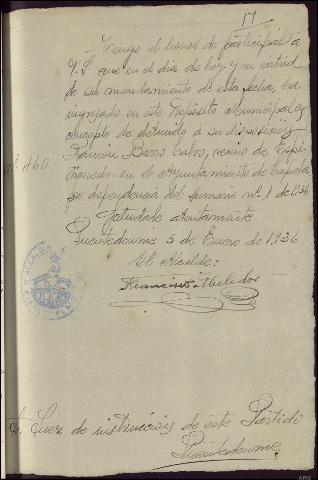 17
Tengo el honor de participar a
V.S. que en el dia de hoy y en virtud
de su mandamiento de esta fecha, ha
ingresado en este Depósito Municipal en
concepto de detenido a su disposición
Ramón Barro Calvo, vecino de
en el Ayuntamiento de Capela,
por dependencia del sumario nº 1 de 1936
Saludale atentamente
Puentedeume 5 de Enero de 1.936
El Alcalde:
Francisco
460
Sr. Juez de instrucción de este Partido
Puentedeume